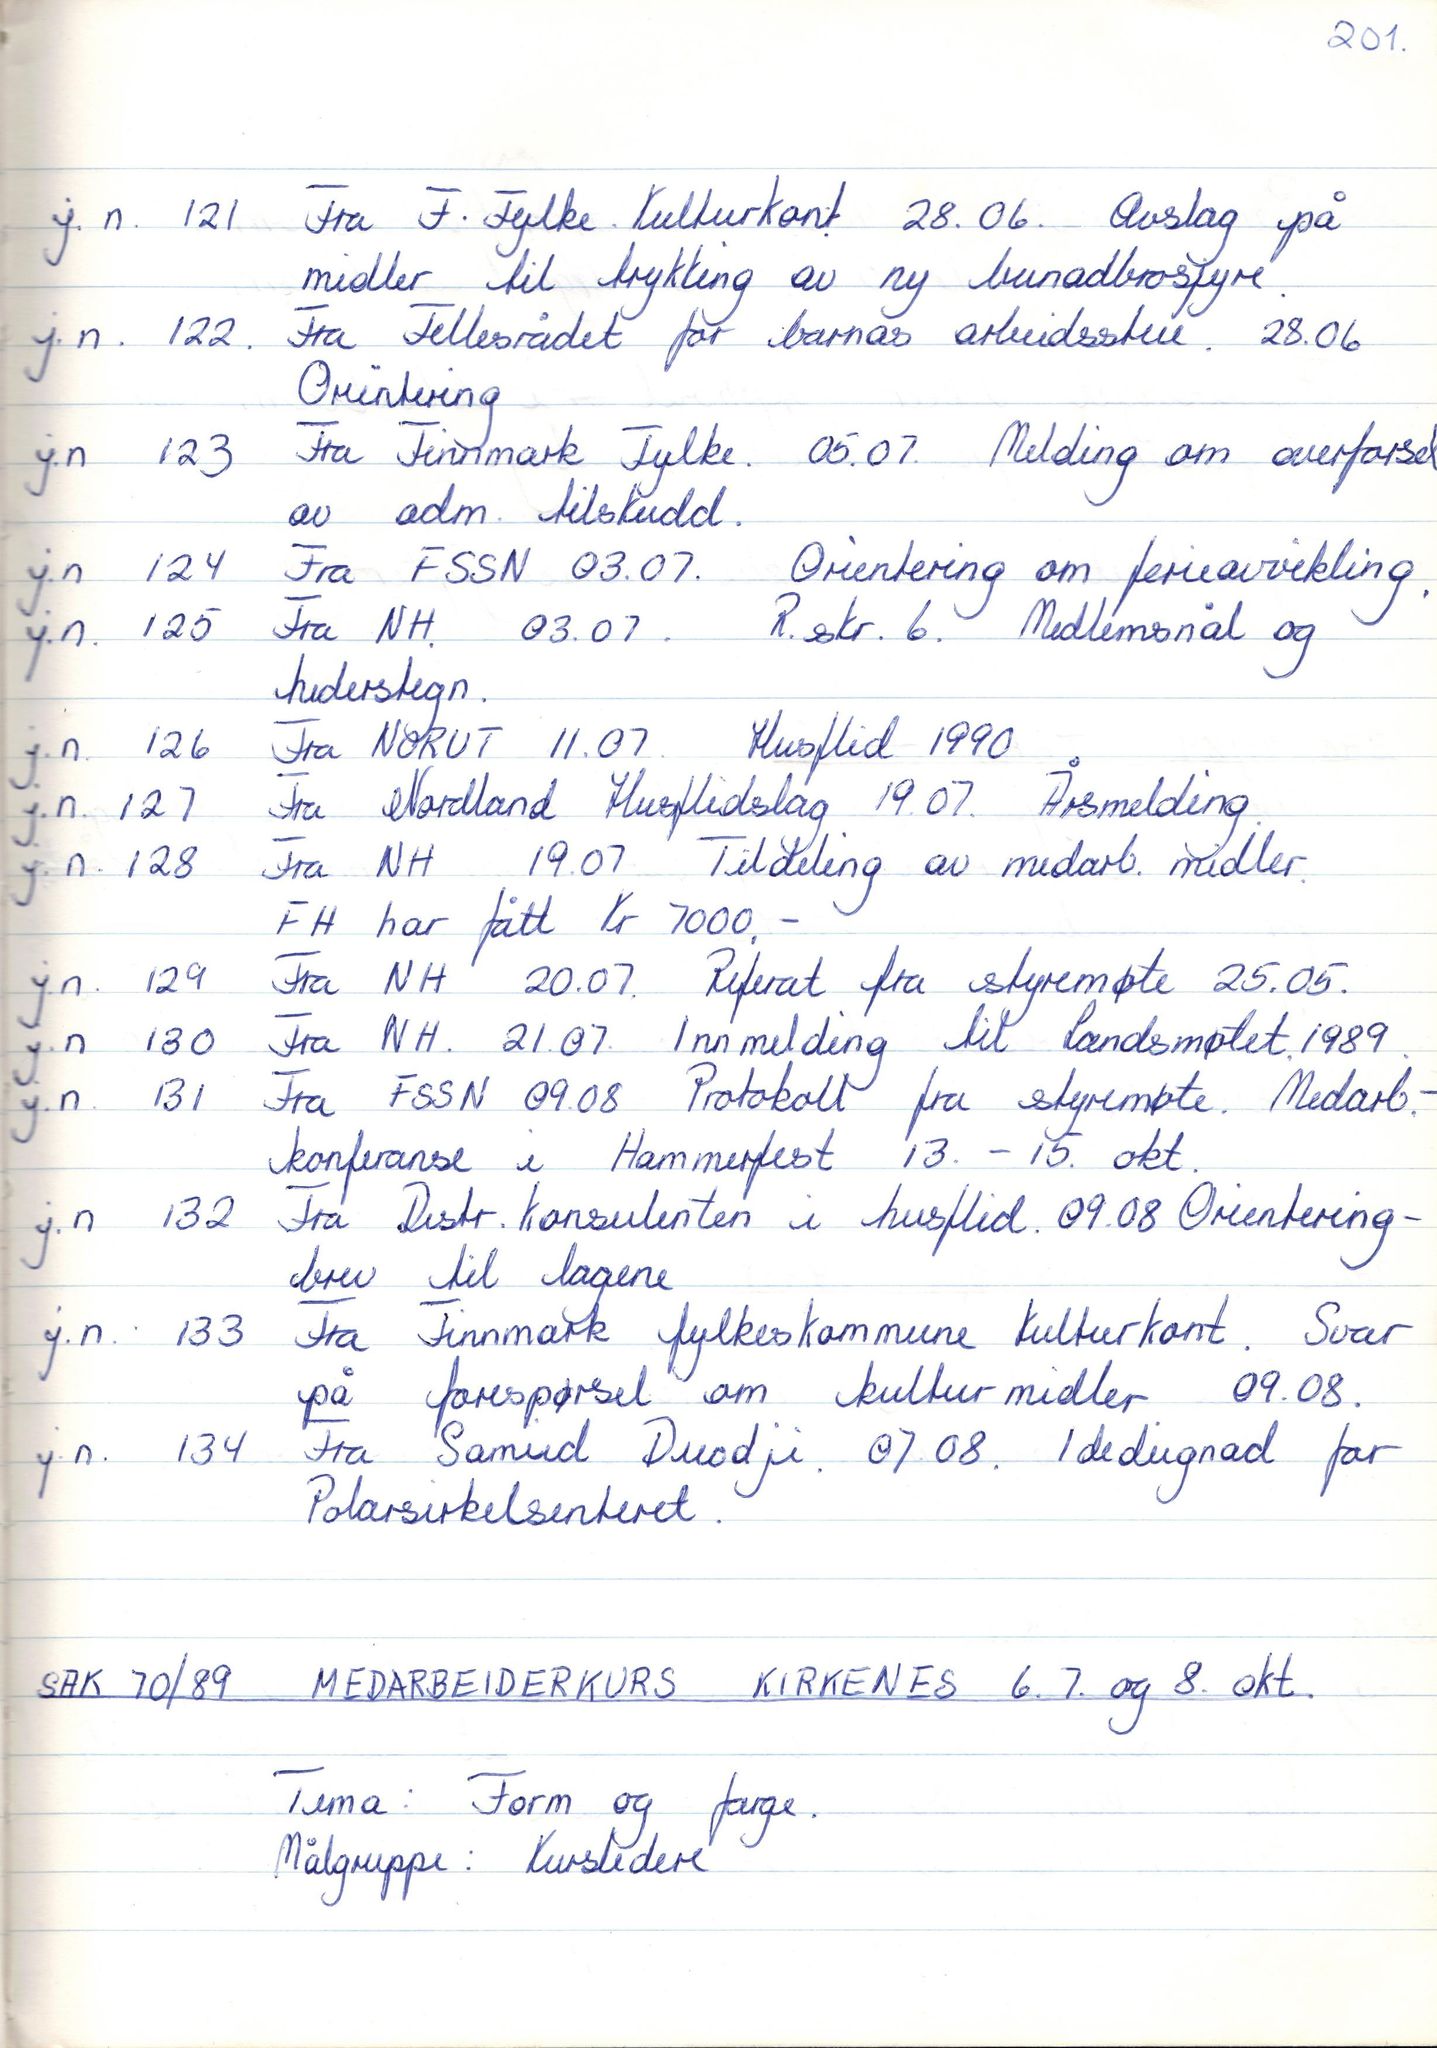 201.
j.n. 121 Fra F. Fylke Kulturkont. 28.06. Avslag på
midler til trykking av ny bunadbrosjyre.
j.n. 122. Fra Fellesrådet for barnas arbeidsstue. 28.06
Orientering
j.n 123 Fra Finnmark Fylke. 05.07. Melding om overførsel
av adm. tilskudd.
j.n 124 Fra FSSN 03.07. Orientering om ferieavvikling.
j.n. 125 Fra NH. 03.07. R.skr. 6. Medlemsnål og
hederstegn.
j.n. 126 Fra NORUT 11.07. Husflid 1990
j.n. 127 Fra Nordland Husflidslag 19.07. Årsmelding.
j.n. 128 Fra NH 19.07 Tildeling av medarb. midler.
FH har fått Kr 7000,-
j.n. 129 Fra NH 20.07. Referat fra styremøte 25.05.
j.n 130 Fra NH. 21.07. Innmelding til Landsmøtet 1989.
j.n. 131 Fra FSSN 09.08 Protokoll fra styremøte. Medarb.-
konferanse i Hammerfest 13. - 15. okt.
j.n 132 Fra Distr. Konsulenten i husflid. 09.08 Orientering-
brev til lagene
j.n. 133 Fra Finnmark fylkeskommune Kulturkont. Svar
på forespørsel om kulturmidler 09.08.
j.n. 134 Fra Samiid Duodji. 07.08. Idedugnad for
Polarsirkelsenteret.
SAK 70/89 MEDARBEIDERKURS KIRKENES 6. 7. og 8. okt.
Tema: Form og farge.
Målgruppe: Kursledere